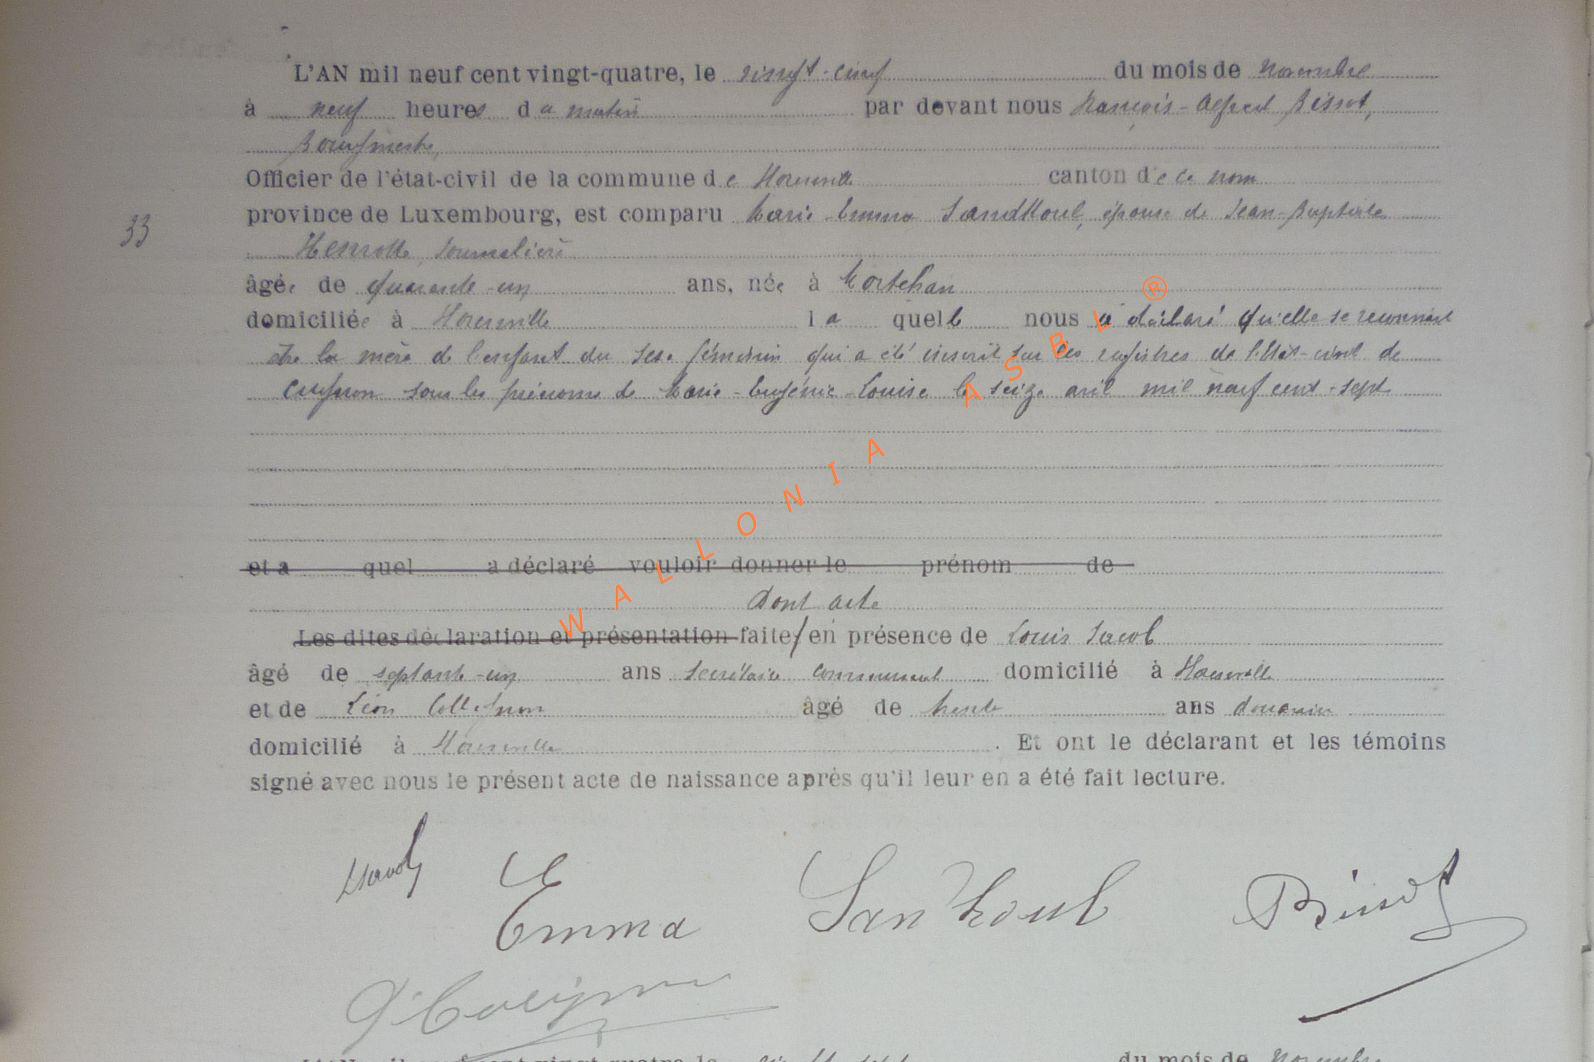 L'AN mil neuf cent vingt-quatre, le vingt-cinq du mois de novembre
à neuf heures du matin par devant nous François-Alfred Bissot,
Bourgmestre,
Officier de l'état-civil de la commune de canton de ce nom
33
province de Luxembourg, est comparu Marie-Emma Sandkoul, épouse de Jean-Baptiste
Henrotte, journalière
âgée de quarante-un ans, née à Mortehan
domiciliée à laquelle nous a déclaré qu'elle se reconnait
être la mère de l'enfant du sexe féminin qui a été inscrit sur les registres de l'état-civil de
Cugnon sous les prénoms de Marie-Eugénie-Louise le seize avril mil neuf cent-sept
et a quel a déclaré vouloir donner le prénom de
Dont acte
Les dites déclaration et présentation faite/ en présence de Louis Jacob
âgé de septante-un ans secrétaire communal domicilié à
et de Léon Collignon âgé de trente ans douanier
domicilié à . Et ont le déclarant et les témoins
signé avec nous le présent acte de naissance après qu'il leur en a été fait lecture.
LJacob Emma Sankoul Bissot
Collignon
L'AN mil neuf cent vingt-quatre, le du mois de novembre
WALLONIA ASBL ®